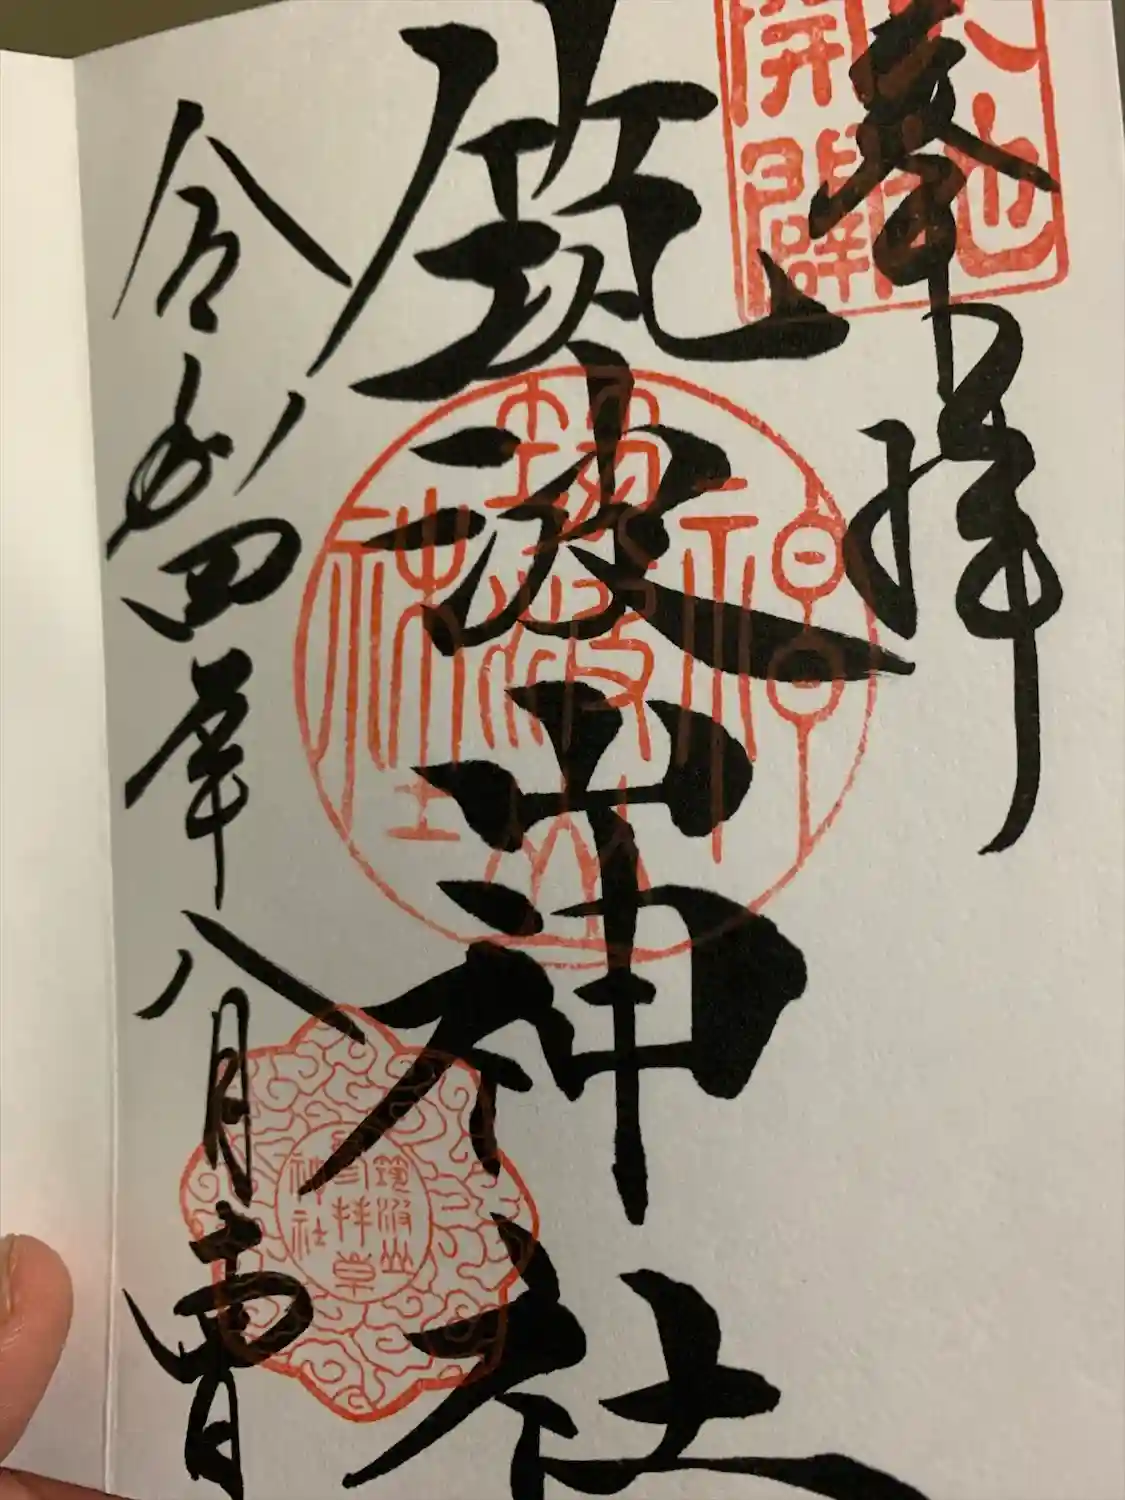 奉拝
天地
開闢
筑波山神社
筑波山
神社
令和四年八月十四日
筑波山
参拝
神社